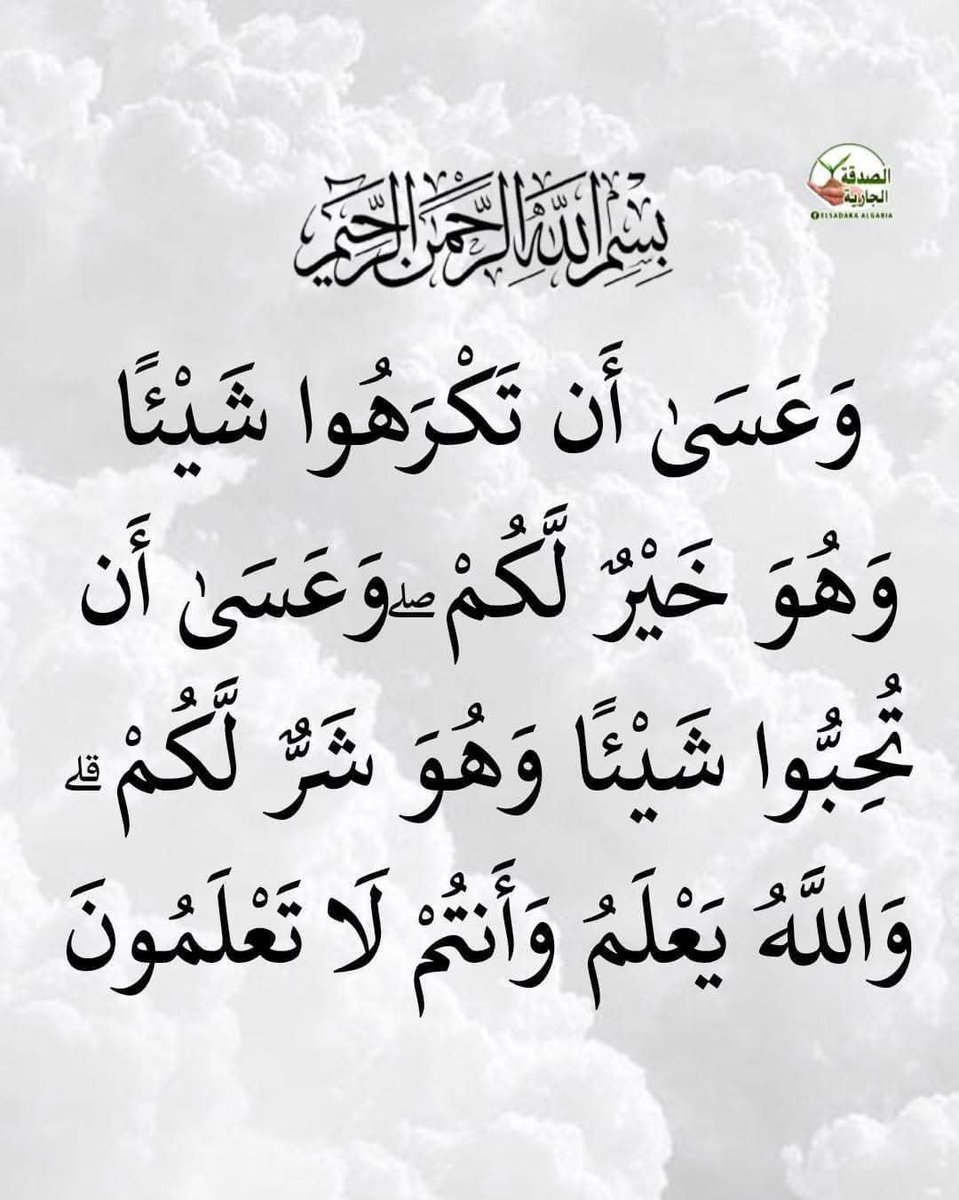 الصدقة
الجارية
ELSADAKA ALGARIA
بِسْمِ اللَّهِ الرَّحْمَنِ الرَّحِيمِ
وَعَسَىٰ أَن تَكْرَهُوا شَيْئًا
وَهُوَ خَيْرٌ لَّكُمْ ۖ وَعَسَىٰ أَن
تُحِبُّوا شَيْئًا وَهُوَ شَرٌّ لَّكُمْ ۗ
وَاللَّهُ يَعْلَمُ وَأَنتُمْ لَا تَعْلَمُونَ